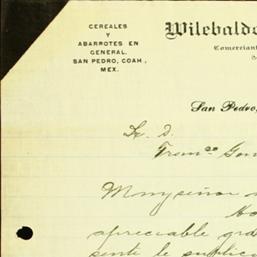 CEREALES
Y
ABARROTES EN
GENERAL.
SAN PEDRO, COAH,
MEX.
Wilebaldo
Comerciant
San Pedro,
Sr. D.
Franco Gon
Muy señor
apreciable gra